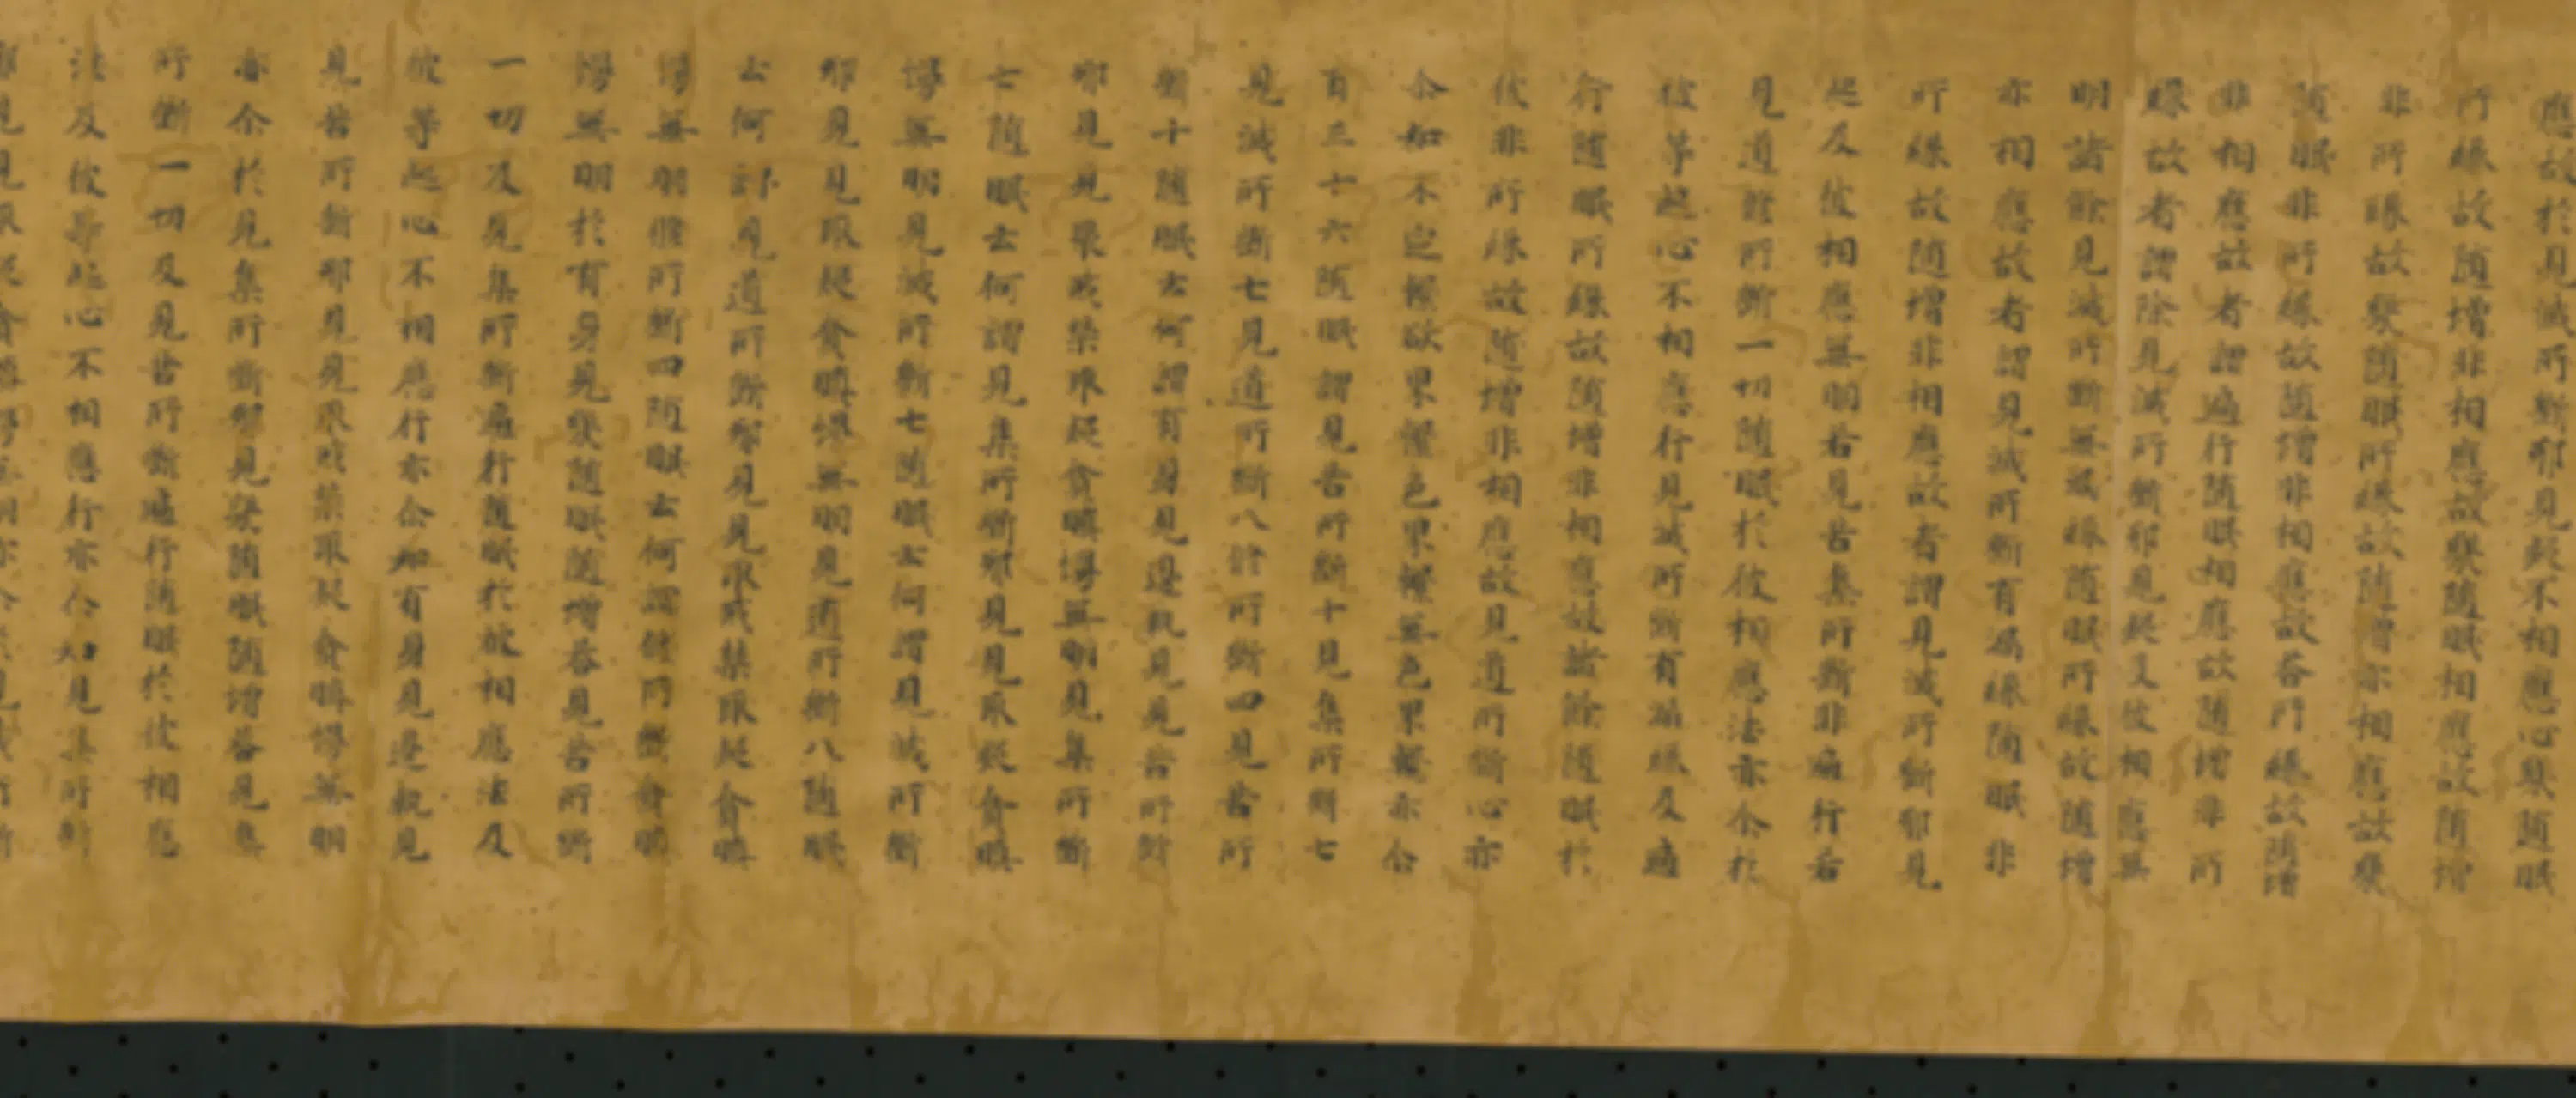 應故於見滅所斷邪見疑不相應心幾隨眠
所緣故隨增非相應故幾隨眠相應故隨增
非所緣故幾隨眠所緣故隨增亦相應故幾
隨眠非所緣故隨增非相應故答所緣故隨增
非相應故者謂遍行隨眠相應故隨增非所
緣故者謂除見滅所斷邪見疑及彼相應無
明諸餘見滅所斷無漏緣隨眠所緣故隨增
亦相應故者謂見滅所斷有漏緣隨眠非
所緣故隨增非相應故者謂見滅所斷邪見
疑及彼相應無明若見苦集所斷非遍行若
見道修所斷一切隨眠於彼相應法亦尒於
彼等起心不相應行見滅所斷有漏緣及遍
行隨眠所緣故隨增非相應故諸餘隨眠於
彼非所緣故隨增非相應故見道所斷心亦
尒如不定繫欲界繫色界繫無色界繫亦尒
有三十六隨眠謂見苦所斷十見集所斷七
見滅所斷七見道所斷八修所斷四見苦所
斷十隨眠云何謂有身見邊執見見苦所斷
邪見見取戒禁取疑貪瞋慢無明見集所斷
七隨眠云何謂見集所斷邪見見取疑貪瞋
慢無明見滅所斷七隨眠云何謂見滅所斷
邪見見取疑貪瞋慢無明見道所斷八隨眠
云何謂見道所斷邪見見取戒禁取疑貪瞋
慢無明修所斷四隨眠云何謂修所斷貪瞋
慢無明於有身見幾隨眠隨增答見苦所斷
一切及見集所斷遍行隨眠於彼相應法及
彼等起心不相應行亦尒如有身見邊執見
見苦所斷邪見見取戒禁取疑貪瞋慢無明
亦尒於見集所斷邪見幾隨眠隨增答見集
所斷一切及見苦所斷遍行隨眠於彼相應
法及彼等起心不相應行亦尒如見集所斷